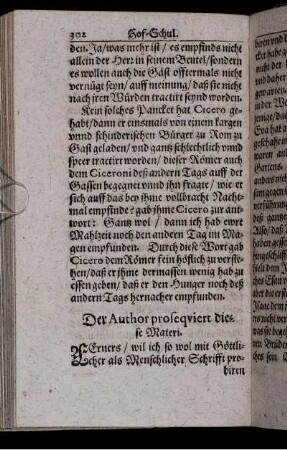 302 Hof-Schul.
den. Ja/was mehr ist / es empfinds nicht
allein der Herr in seinem Beutel/sondern
es wollen auch die Gäst offtermals nicht
vernügt seyn/ auff meinung/ daß sie nicht
nach jren Würden tractirt seynd worden.
Kein solches Pancket hat Cicero ge-
habt/dann er einsmals von einem kargen
vnnd schinderischen Bürger zu Rom zu
Gast geladen/ vnd gantz schlechtlich vnnd
speer tractirt worden/ dieser Römer auch
dem Ciceroni deß andern Tags auff der
Gassen begegnet vnnd jhn fragte/ wie er
sich auff das bey jhme vollbracht Nacht-
mal empfinde? gab jhme Cicero zur ant-
wort: Gantz wol / dann ich hab ewre
Mahlzeit noch den andern Tag im Ma-
gen empfunden. Durch diese Wort gab
Cicero dem Römer fein höflich zu verste-
hen/daß er jhme dermassen wenig hab zu
essen geben/ daß er den Hunger noch deß
andern Tags hernacher empfunden.
Der Author proseqviert die-
se Materi.
FErners / wil ich so wol mit Göttli-
cher als Menschlicher Schrifft pro-
biren